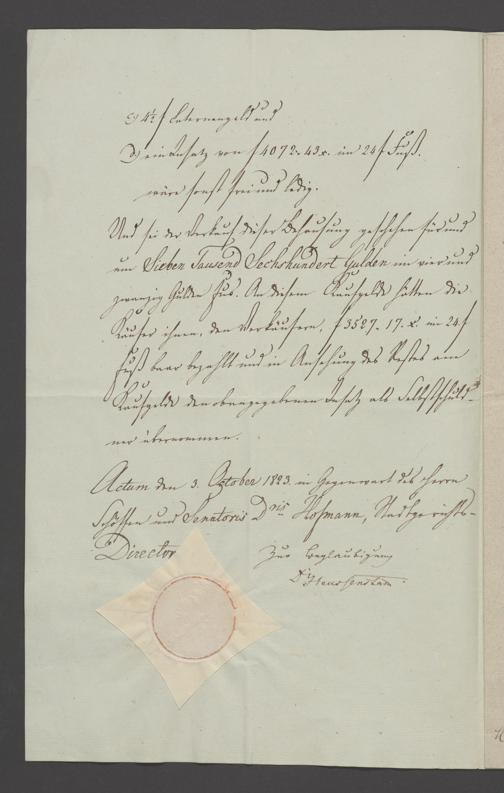 c) 4½ f Laternengeld und
D) ein Insatz von f 4072. 43 x. im 24 f Fuß.
wäre sonst frei und ledig.
Und sei der Verkauf dieser Behausung geschehen für und
um Sieben Tausend Sechshundert Gulden im vier und
zwanzig Gulden Fus. An diesem Kaufgelde hätten die
Käufer ihnen, den Verkäufern, f 3527. 17. x. im 24 f
Fuß baar bezahlt und in Ansehung des Restes am
Kaufgelde den obenangegebenen Insatz als Selbstschuld-
ner übernommen.
Actum den 3. October 1823. in Gegenwart des Herrn
Schöffen und Senatoris Dris Hofmann, Stadtgerichts-
Director
Zur Beglaubigung
Dr Heussenstam.